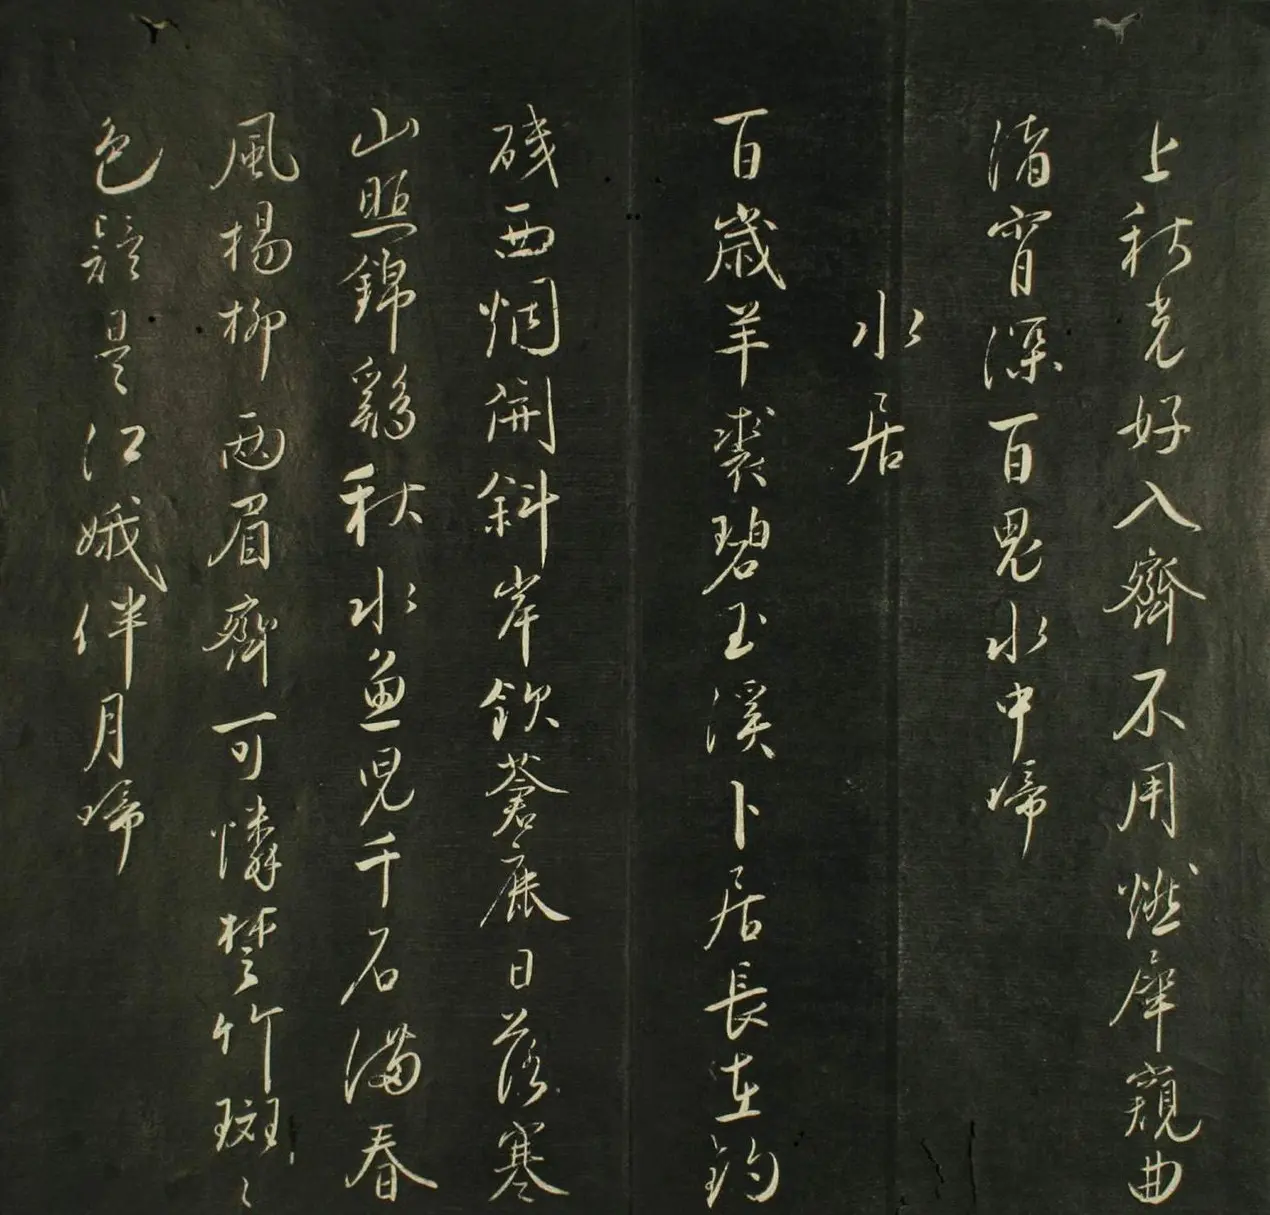 上秋光好入齋不用燃犀窺曲
渚宵深百鬼水中啼
水居
百歲羊裘碧玉溪卜居長在釣
磯西烟開斜岸飲蒼鹿日落寒
山照錦鷄秋水魚兒千石滿春
風楊柳兩眉齊可憐楚竹斑〻
色疑是江娥伴月啼